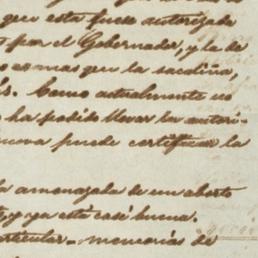 que esta fuese autorizada
por el Gobernador, y la de
no es mas que la
Como actualmente no
ha podido llevar la autori-
nueva puede certificar la
la amenazada de un aborto
y ya está casi buena.
articular - memorias de